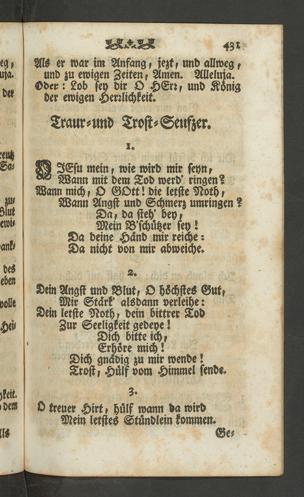 431
Als er war im Anfang, jezt, und allweg,
und zu ewigen Zeiten, Amen. Alleluja.
Oder: Lob sey dir O HErr, und König
der ewigen Herrlichkeit.
Traur-und Trost-Seufzer.
1.
O JEsu mein, wie wird mir seyn,
Wann mit dem Tod werd' ringen?
Wann mich, O GOtt! die letste Noth,
Wann Angst und Schmerz umringen?
Da, da steh' bey,
Mein B'schützer sey!
Da deine Händ mir reiche:
Da nicht von mir abweiche.
2.
Dein Angst und Blut, O höchstes Gut,
Mir Stärk' alsdann verleihe:
Dein letste Noth, dein bittrer Tod
Zur Seeligkeit gedeye!
Dich bitte ich,
Erhöre mich!
Dich gnädig zu mir wende!
Trost, Hülf vom Himmel sende.
3.
O treuer Hirt, hülf wann da wird
Mein letstes Stündlein kommen.
Ge-